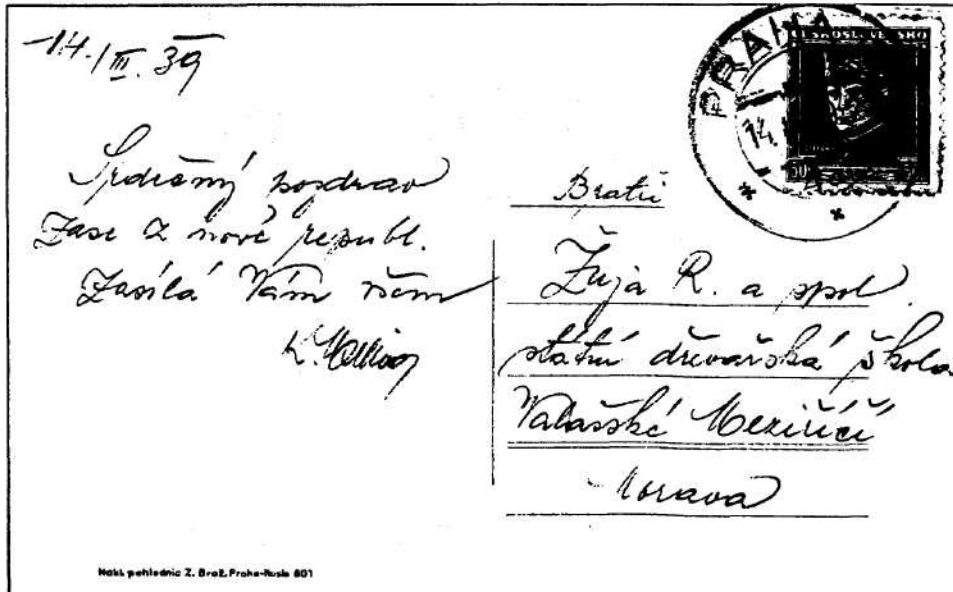 14./III. 39
Srdečný pozdrav
zase z nové republ.
zasílá Vám všem
PRAHA
14.
ČESKOSLOVENSKO
50
Bratři
Žůja R. a spol.
státní dřevařská škola
Valašské Meziříčí
Morava
Nakl. pohlednic Z. Brož, Praha-Nusle 801